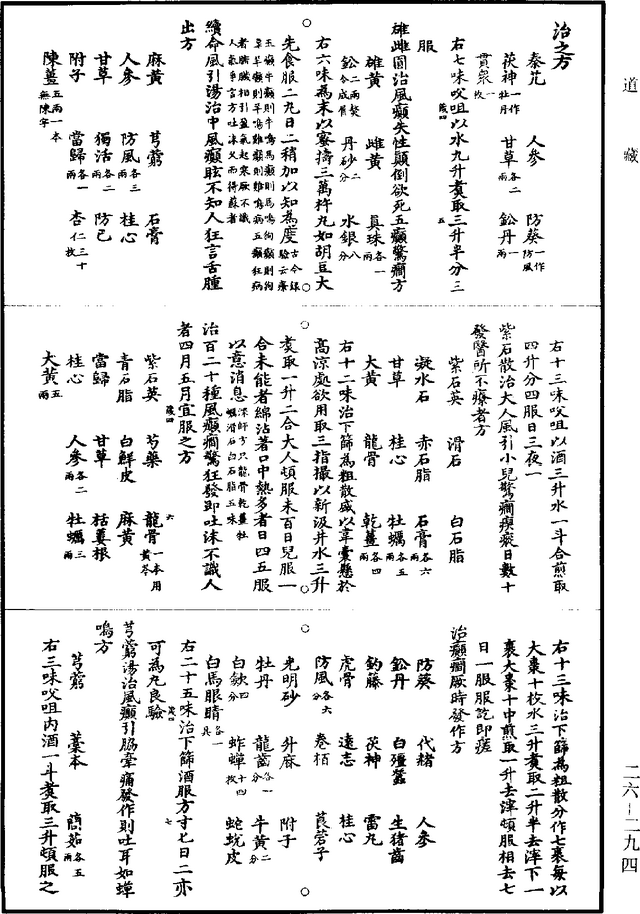 道藏
治之方
秦艽　人參　防葵一作防風
茯神一作牡丹　甘草各二兩　鉛丹一兩
貫衆一枚
右七味㕮咀以水九升煮取三升半分三
服
雄雌圓治風癲失性顛倒欲死五癲驚癇方
雄黃　雌黃　真珠各一兩
鉛二兩熬令成屑　丹砂二分　水銀八分
右六味為末以蜜擣三萬杵丸如胡豆大
先食服二丸日二稍加以知為度古今錄驗云療
五癲牛癲則牛鳴馬癲則馬鳴狗癲則狗
者腑臟相引盈氣起寒厥不識
人氣爭言方吐沫久而得蘇者
續命風引湯治中風癲眩不知人狂言舌腫
出方
麻黃　芎藭　石膏
人參　防風各三兩　桂心
甘草　獨活各二兩　防己
附子　當歸各一兩　杏仁三十枚
陳薑五兩一本無陳字
右十三味㕮咀以酒三升水一斗合煎取
四升分四服日三夜一
紫石散治大人風引小兒驚癇瘈瘲日數十
發醫所不療者方
紫石英　滑石　白石脂
凝水石　赤石脂　石膏各六兩
甘草　桂心　牡蠣各五兩
大黃　龍骨　乾薑各四兩
右十二味治下篩為粗散盛以韋囊懸於
高涼處欲用取三指撮以新汲井水三升
煮取一升二合大人頓服未百日兒服一
合未能者綿沾著口中熱多者日四五服
以意消息深師方只龍骨乾薑牡蠣滑石白石脂五味
治百二十種風癲癇驚狂發即吐沫不識人
者四月五月宜服之方
紫石英　芍藥　龍骨一本用黃芩
青石脂　白鮮皮　麻黃
當歸　甘草　栝蔞根
桂心　人參各二兩　牡蠣三兩
大黃五兩
右十三味治下篩為粗散分作七裹每以
大棗十枚水三升煮取二升半去滓下一
裹大棗十中煎取一升去滓頓服相去七
日一服服訖即瘥
治癲癇厥時發作方
防葵　代赭　人參
鉛丹　白殭蠶　生猪齒
鈎藤　茯神　雷丸
虎骨　遠志　桂心
防風各六分　卷栢　莨菪子
光明砂　升麻　附子
牡丹　龍齒各一分　牛黃二分
白歛四分　蚱蟬十四枚　蛇蛻皮
白馬眼睛各一具
右二十五味治下篩酒服方寸匕日二亦
可為丸良驗
芎藭湯治風癲引脇牽痛發作則吐耳如蟬
鳴方
芎藭　藁本　䕡茹各五兩
右三味㕮咀內酒一斗煮取三升頓服之
二六—二九四